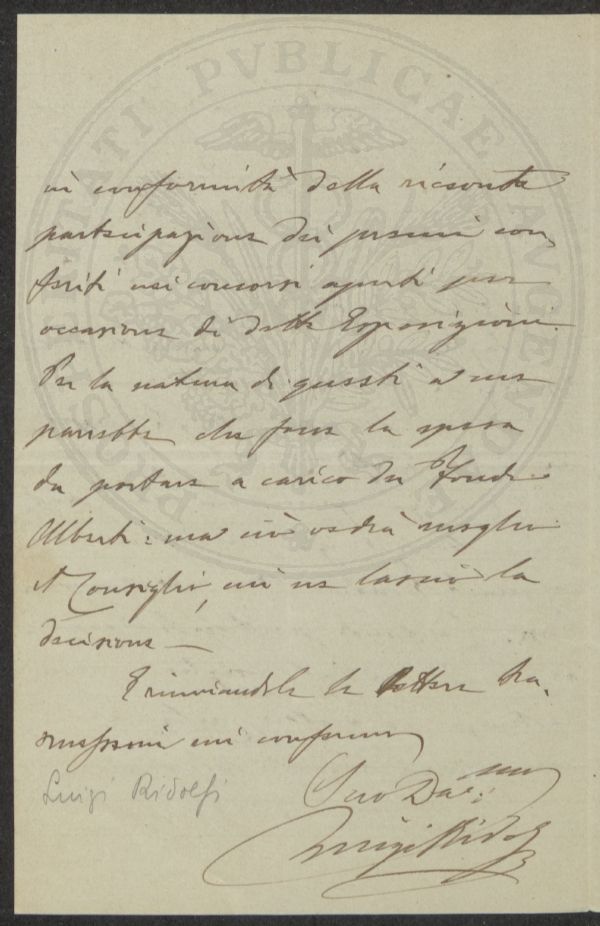 PROSPERITATI PVBLICAE AVGENDAE
in conformità della ricevuta
partecipazione dei premi con
feriti nei concorsi aperti per
occasione di dette Esposizioni.
Per la natura di questi a me
parrebbe che fosse la spesa
da portare a carico dei Fondi
Alberti: ma ciò vedrà meglio
il Consiglio, cui ne lascio la
decisione —
E rinviandole le lettere tra-
smessemi mi confermo
Suo Dev.mo:
Luigi Ridolfi
Luigi Ridolfi